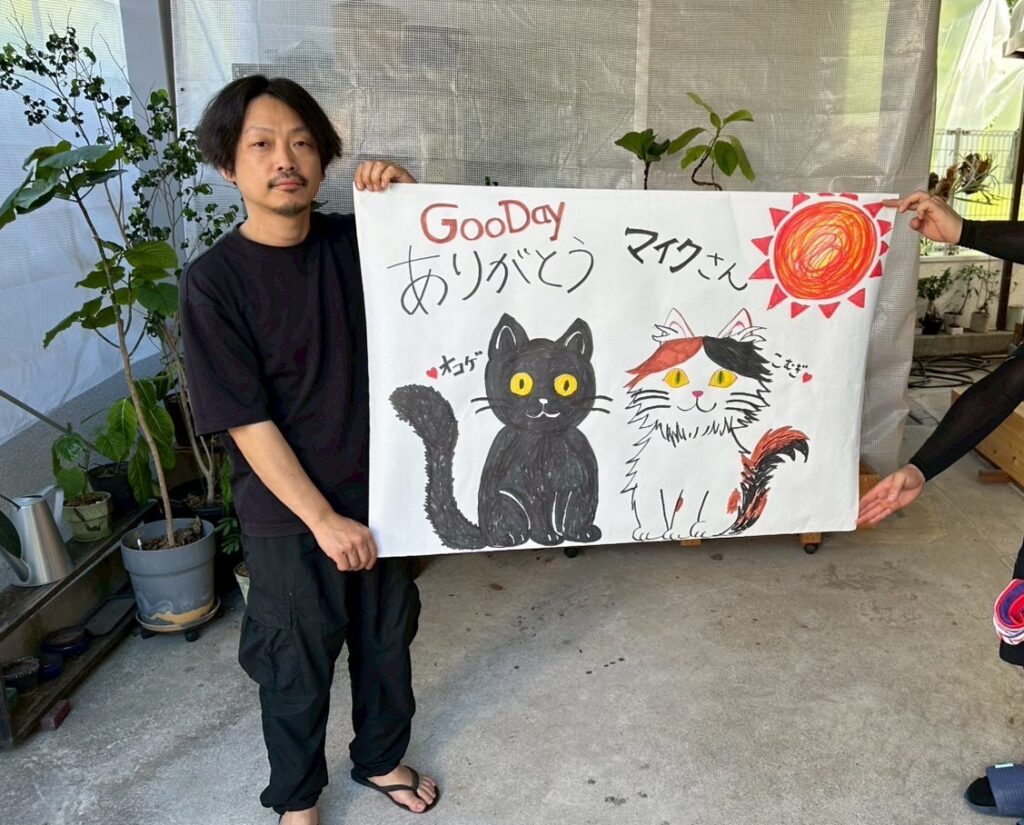 GooDay
ありがとう
マイクさん
オコゲ
こむぎ